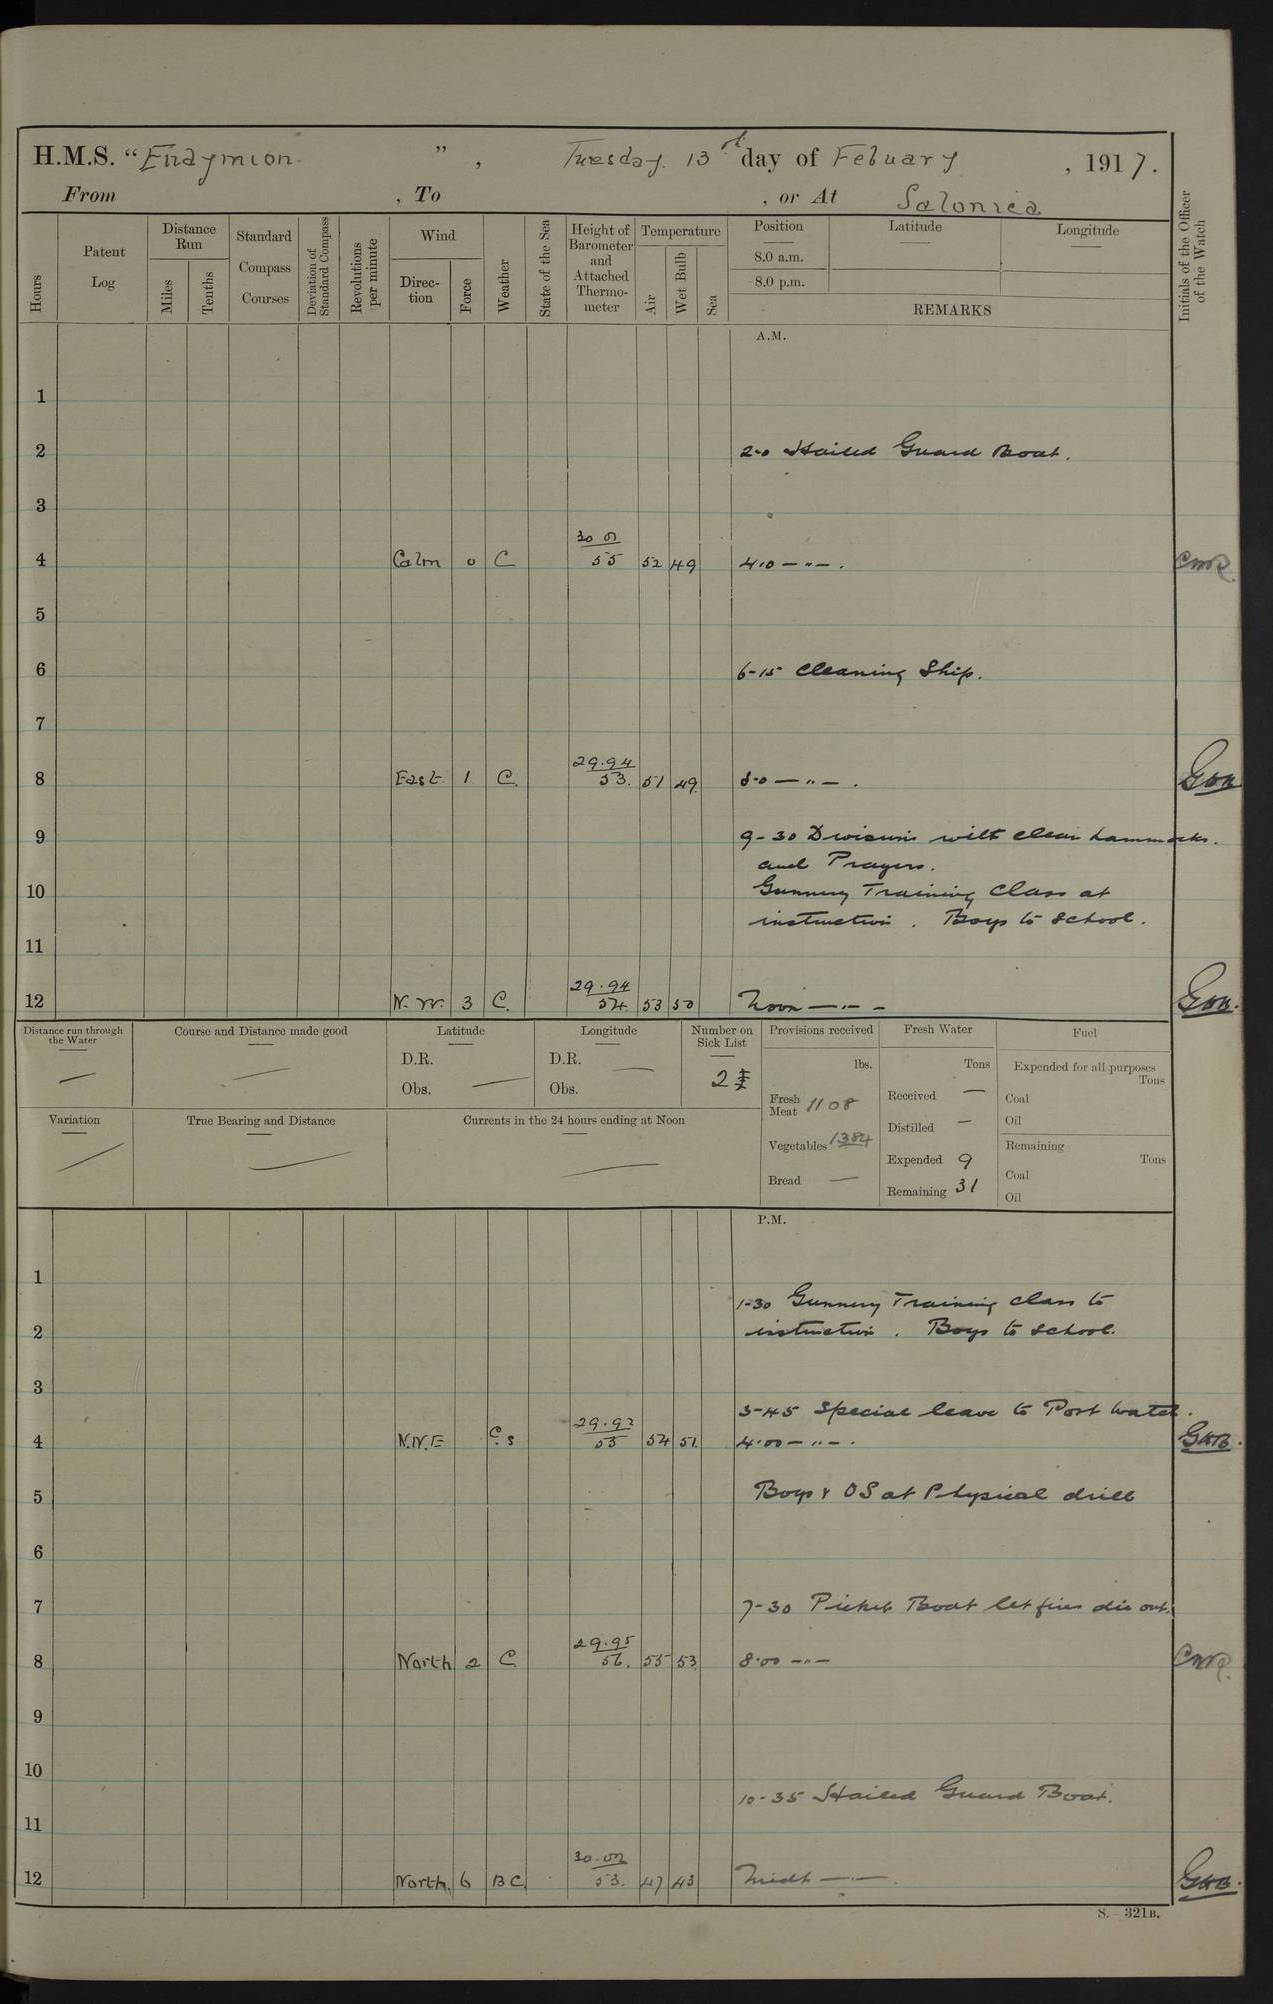 H.M.S. "Endymion. ", Tuesday. 13th day of Febuary, 1917.
From , To , or At Salonica
Hours
Patent Log
Distance Run
Miles
Tenths
Standard Compass Courses
Deviation of Standard Compass
Revolutions per minute
Wind
Direction
Force
Weather
State of the Sea
Height of Barometer and Attached Thermometer
Temperature
Air
Wet Bulb
Sea
Position
8.0 a.m.
8.0 p.m.
Latitude
Longitude
REMARKS
Initials of the Officer of the Watch
A.M.
1
2 2-0 Hailed Guard Boat.
3
4 Calm 0 C 55 52 49 4.0 — " — .
5
6 6-15 Cleaning Ship.
7
8 East. 1 C. 29.94 53. 51 49. 8.0 — " — .
9 9-30 Divisions with clean hammocks.
and Prayers.
10 Gunnery Training Class at
instruction. Boys to School.
11
12 N.W. 3 C. 29.94 54. 53 50 Noon — " —
Distance run through the Water
Course and Distance made good
Latitude
D.R.
Obs.
Longitude
D.R.
Obs.
Number on Sick List
2
Provisions received
lbs.
Fresh Meat 1108
Vegetables 1384
Bread —
Fresh Water
Tons
Received —
Distilled —
Expended 9
Remaining 31
Fuel
Expended for all purposes
Tons
Coal
Oil
Remaining
Tons
Coal
Oil
Variation
True Bearing and Distance
Currents in the 24 hours ending at Noon
P.M.
1
1-30 Gunnery Training class to
2 instruction. Boys to School.
3
3-45 Special leave to Port Watch.
4 N.N.E 29.92 55 54 51. 4.00 — " — .
5 Boys & OS at Physical drill
6
7 7-30 Picket Boat let fires die out.
8 North 2 C 29.95 56. 55 53. 8.00 — " —
9
10
10-35 Hailed Guard Boat.
11
12 North. 6 BC. 30.02 53. 47 43 Midt — " —
S.—321B.